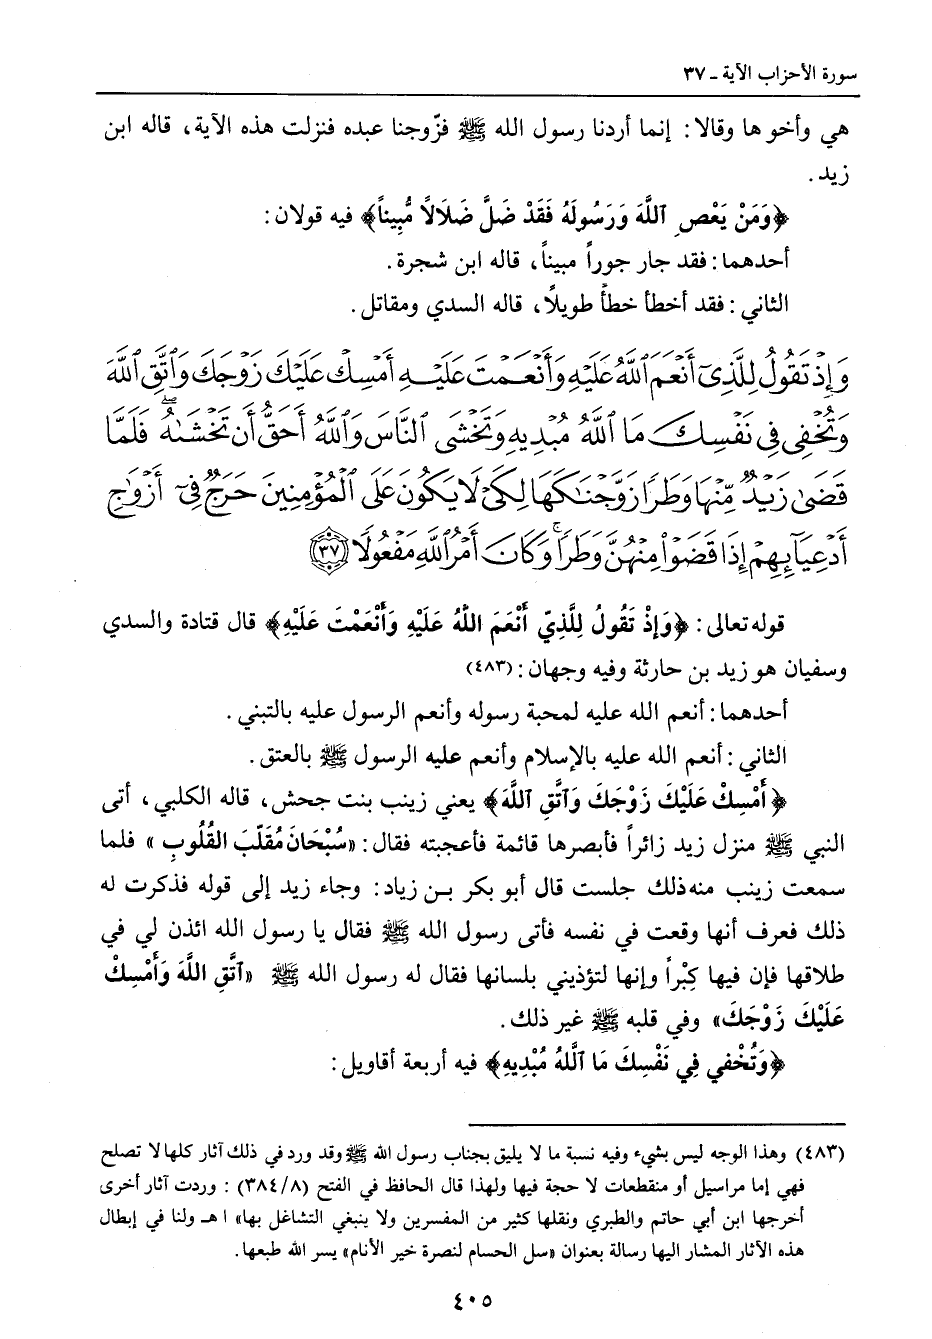 سورة الأحزاب الآية ـ ٣٧
هي وأخوها وقالا: إنما أردنا رسول الله ﷺ فزّوجنا عبده فنزلت هذه الآية، قاله ابن
زيد.
﴿وَمَنْ يَعْصِ ٱللَّهَ وَرَسُولَهُ فَقَدْ ضَلَّ ضَلَالاً مُّبِيناً﴾ فيه قولان:
أحدهما: فقد جار جوراً مبيناً، قاله ابن شجرة.
الثاني: فقد أخطأ خطأً طويلًا، قاله السدي ومقاتل.
وَإِذْ تَقُولُ لِلَّذِىٓ أَنْعَمَ ٱللَّهُ عَلَيْهِ وَأَنْعَمْتَ عَلَيْهِ أَمْسِكْ عَلَيْكَ زَوْجَكَ وَٱتَّقِ ٱللَّهَ
وَتُخْفِى فِى نَفْسِكَ مَا ٱللَّهُ مُبْدِيهِ وَتَخْشَى ٱلنَّاسَ وَٱللَّهُ أَحَقُّ أَن تَخْشَىٰهُۖ فَلَمَّا
قَضَىٰ زَيْدٌ مِّنْهَا وَطَرًا زَوَّجْنَٰكَهَا لِكَىْ لَا يَكُونَ عَلَى ٱلْمُؤْمِنِينَ حَرَجٌ فِىٓ أَزْوَٰجِ
أَدْعِيَآئِهِمْ إِذَا قَضَوْا۟ مِنْهُنَّ وَطَرًاۚ وَكَانَ أَمْرُ ٱللَّهِ مَفْعُولًا ٣٧
قوله تعالى: ﴿وَإِذْ تَقُولُ لِلَّذِيّ أَنْعَمَ اللَّهُ عَلَيْهِ وَأَنْعَمْتَ عَلَيْهِ﴾ قال قتادة والسدي
وسفيان هو زيد بن حارثة وفيه وجهان: (٤٨٣)
أحدهما: أنعم الله عليه لمحبة رسوله وأنعم الرسول عليه بالتبني.
الثاني: أنعم الله عليه بالإسلام وأنعم عليه الرسول ﷺ بالعتق.
﴿أَمْسِكْ عَلَيْكَ زَوْجَكَ وَاتَّقِ ٱللَّهَ﴾ يعني زينب بنت جحش، قاله الكلبي، أتى
النبي ﷺ منزل زيد زائراً فأبصرها قائمة فأعجبته فقال: «سُبْحَانَ مُقَلّبَ القُلُوبِ» فلما
سمعت زينب منه ذلك جلست قال أبو بكر بن زياد: وجاء زيد إلى قوله فذكرت له
ذلك فعرف أنها وقعت في نفسه فأتى رسول الله ﷺ فقال يا رسول الله ائذن لي في
طلاقها فإن فيها كِبْراً وإنها لتؤذيني بلسانها فقال له رسول الله ﷺ «اتَّقِ اللَّهَ وَأَمْسِكْ
عَلَيْكَ زَوْجَكَ» وفي قلبه ﷺ غير ذلك.
﴿وَتُخْفي فِي نَفْسِكَ مَا ٱللَّهُ مُبْدِيهِ﴾ فيه أربعة أقاويل:
(٤٨٣) وهذا الوجه ليس بشيء وفيه نسبة ما لا يليق بجناب رسول الله ﷺ وقد ورد في ذلك آثار كلها لا تصلح
فهي إما مراسيل أو منقطعات لا حجة فيها ولهذا قال الحافظ في الفتح (٣٨٤/٨): وردت آثار أخرى
أخرجها ابن أبي حاتم والطبري ونقلها كثير من المفسرين ولا ينبغي التشاغل بها» اهـ ولنا في إبطال
هذه الآثار المشار اليها رسالة بعنوان «سل الحسام لنصرة خير الأنام» يسر الله طبعها.
٤٠٥